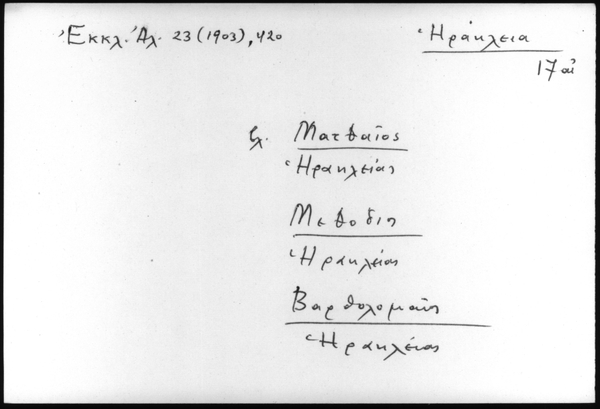 Ἐκκλ. Ἀλ. 23 (1903), 420
Ἡράκλεια
17 αἰ
βλ. Ματθαῖος
Ἡρακλείας
Μεθόδιος
Ἡρακλείας
Βαρθολομαῖος
Ἡρακλείας